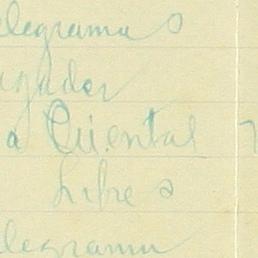 elegrama o
agador
a Oriental 7
Libre o
elegrama